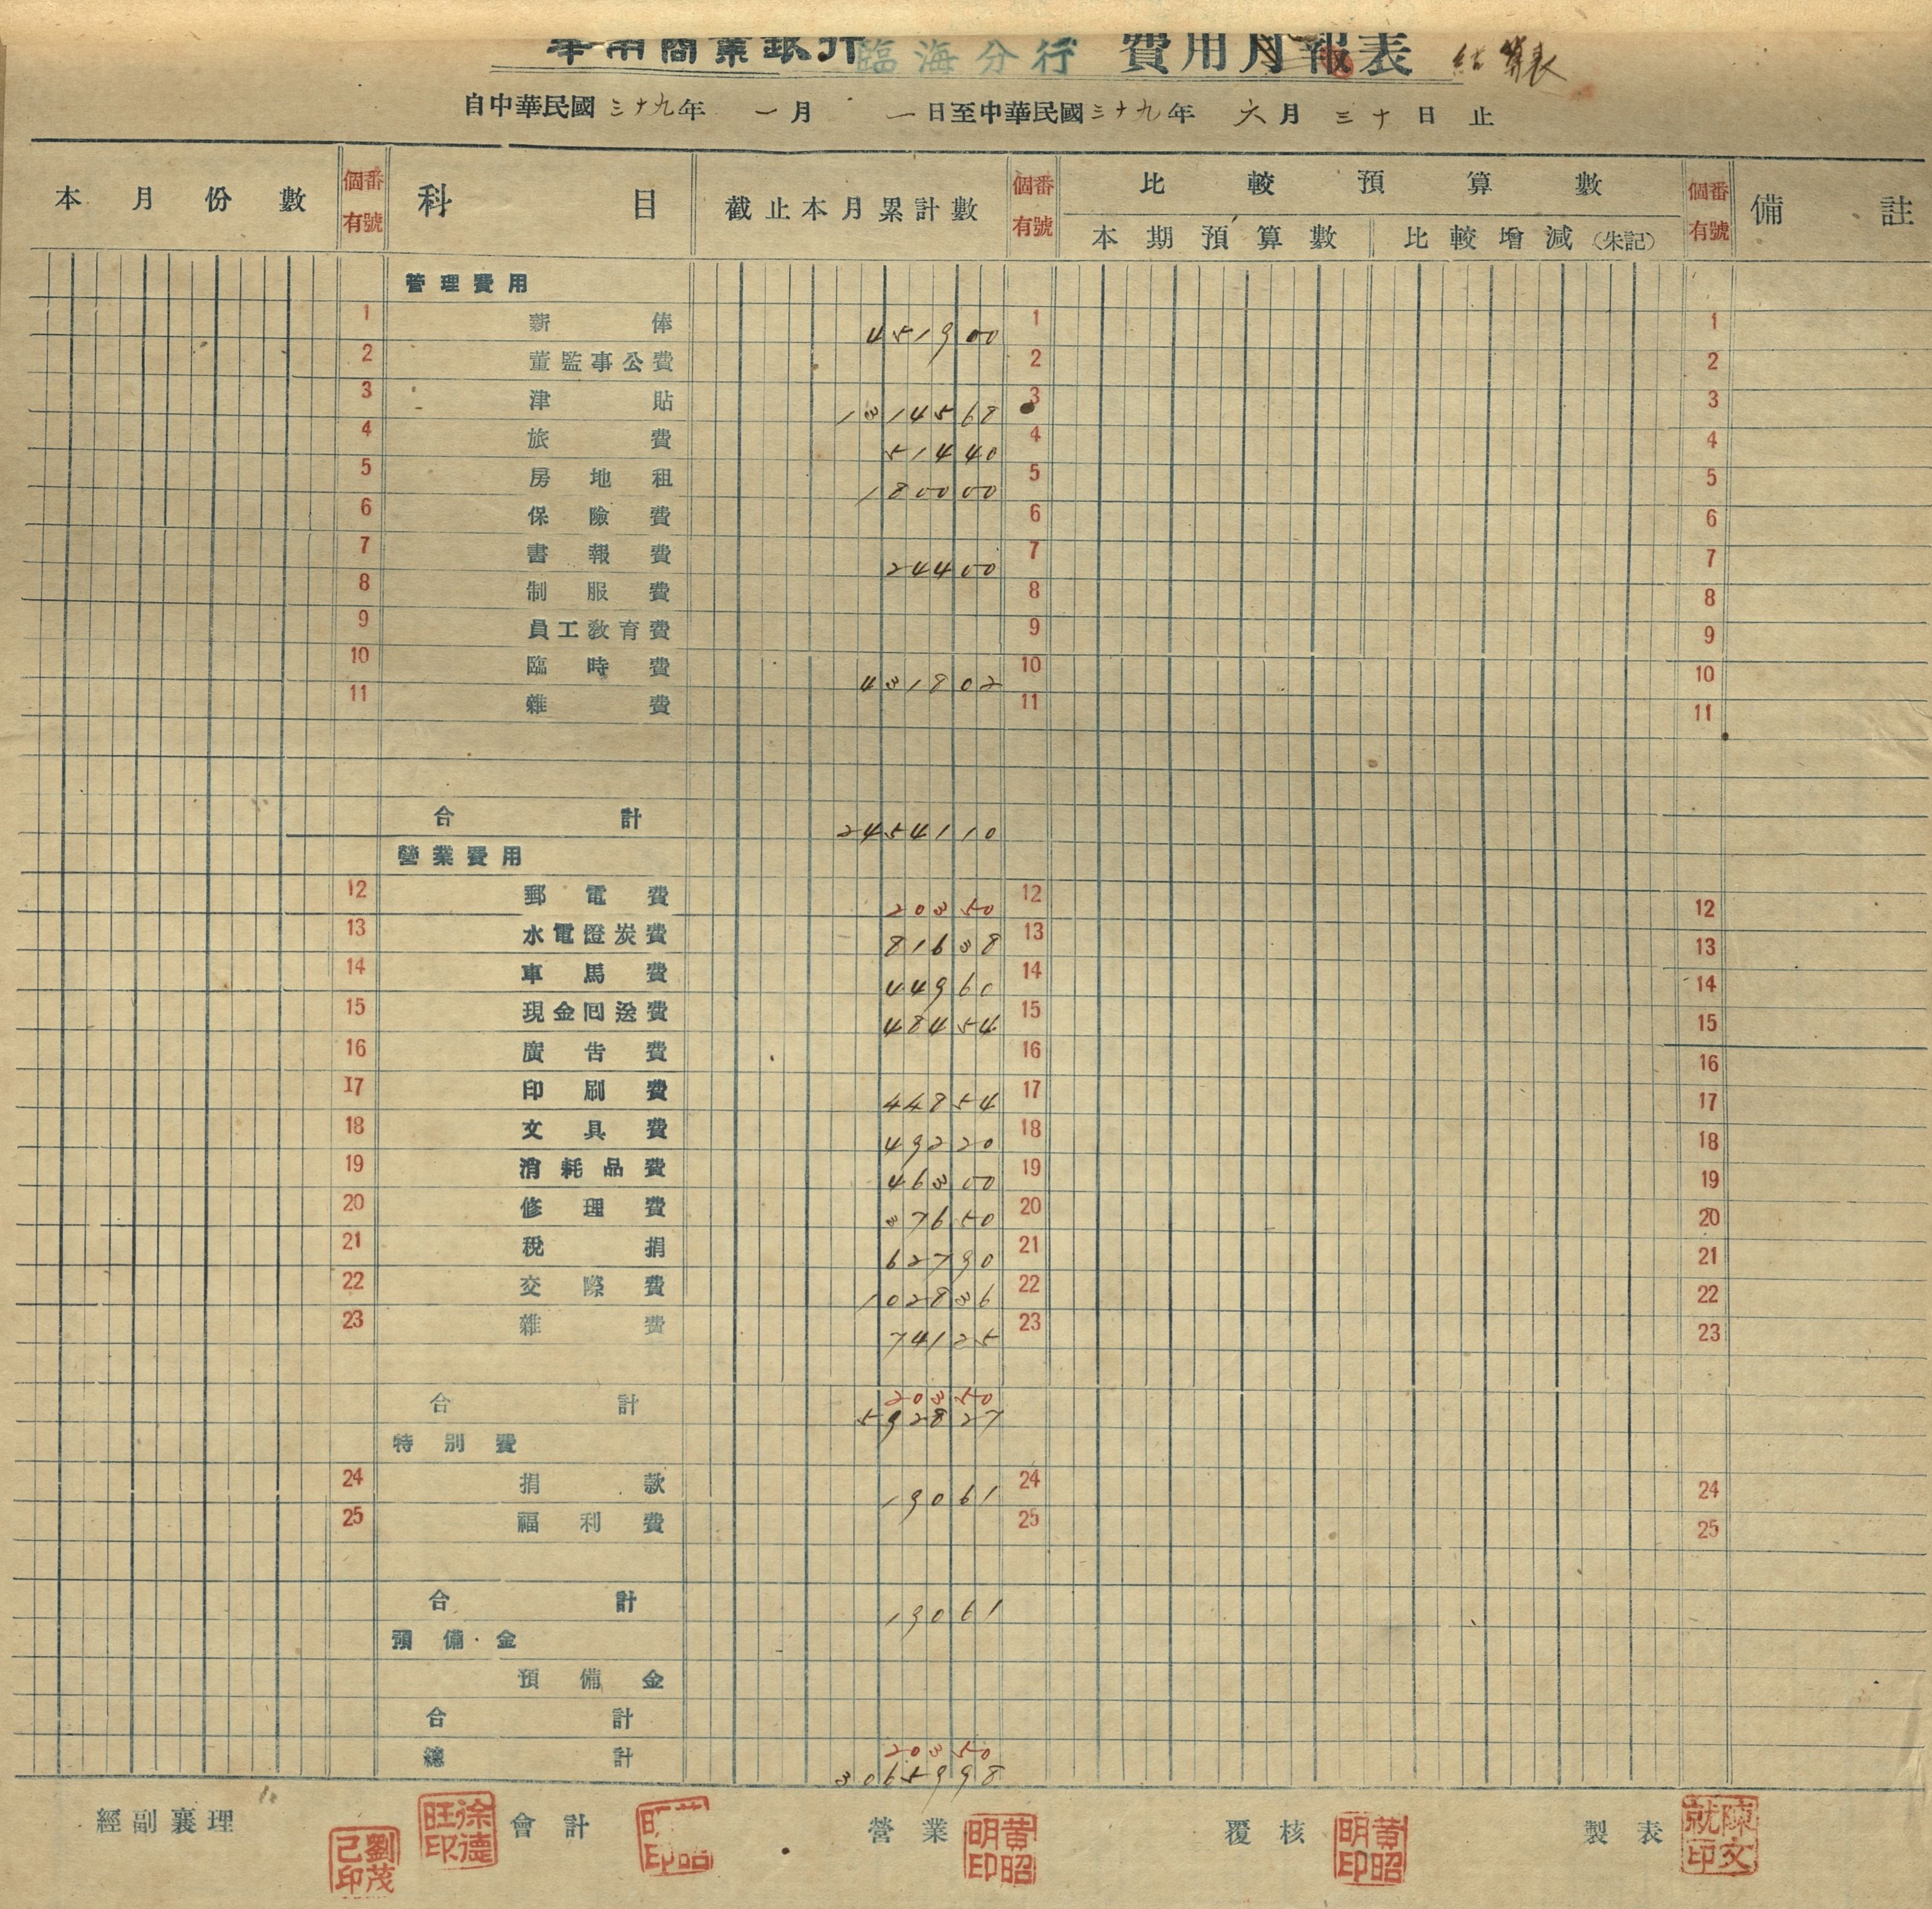 華南商業銀行 臨海分行 費用月報表 結算表
自中華民國三十九年 一月 一日至中華民國三十九年 六月 三十日 止
本月份數 個有番號 科目 截止本月累計數 個有番號 比較預算數 個有番號 備註
本期預算數 比較增減(朱記)
管理費用
1 薪俸 451900 1 1
2 董監事公費 2 2
3 津貼 1314568 3 3
4 旅費 51440 4 4
5 房地租 180000 5 5
6 保險費 6 6
7 書報費 24400 7 7
8 制服費 8 8
9 員工教育費 9 9
10 臨時費 431802 10 10
11 雜費 11 11
合計 2454110
營業費用
12 郵電費 20350 12 12
13 水電燈炭費 81638 13 13
14 車馬費 44960 14 14
15 現金回送費 48454 15 15
16 廣告費 16 16
17 印刷費 44854 17 17
18 文具費 49220 18 18
19 消耗品費 46300 19 19
20 修理費 37650 20 20
21 稅捐 62790 21 21
22 交際費 102836 22 22
23 雜費 74125 23 23
20350
合計 592827
特別費
24 捐款 19061 24 24
25 福利費 25 25
合計 19061
預備金
預備金
合計
20350
總計 3065998
經副襄理 劉茂己印 徐德旺印 會計 營業 黃昭明印 覆核 黃昭明印 製表 陳文就印